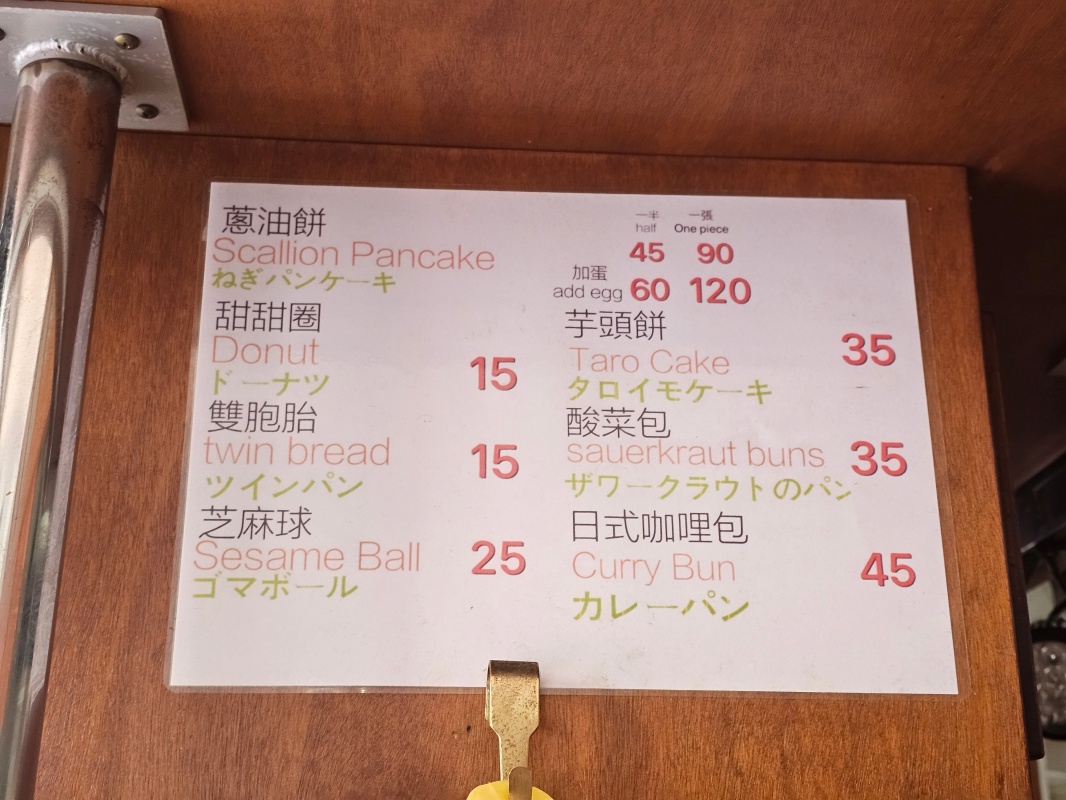 蔥油餅
Scallion Pancake
ねぎパンケーキ
一半 一張
half One piece
45 90
加蛋
add egg 60 120
甜甜圈
Donut 15
ドーナツ
雙胞胎
twin bread 15
ツインパン
芝麻球
Sesame Ball 25
ゴマボール
芋頭餅
Taro Cake 35
タロイモケーキ
酸菜包
sauerkraut buns 35
ザワークラウトのパン
日式咖哩包
Curry Bun 45
カレーパン